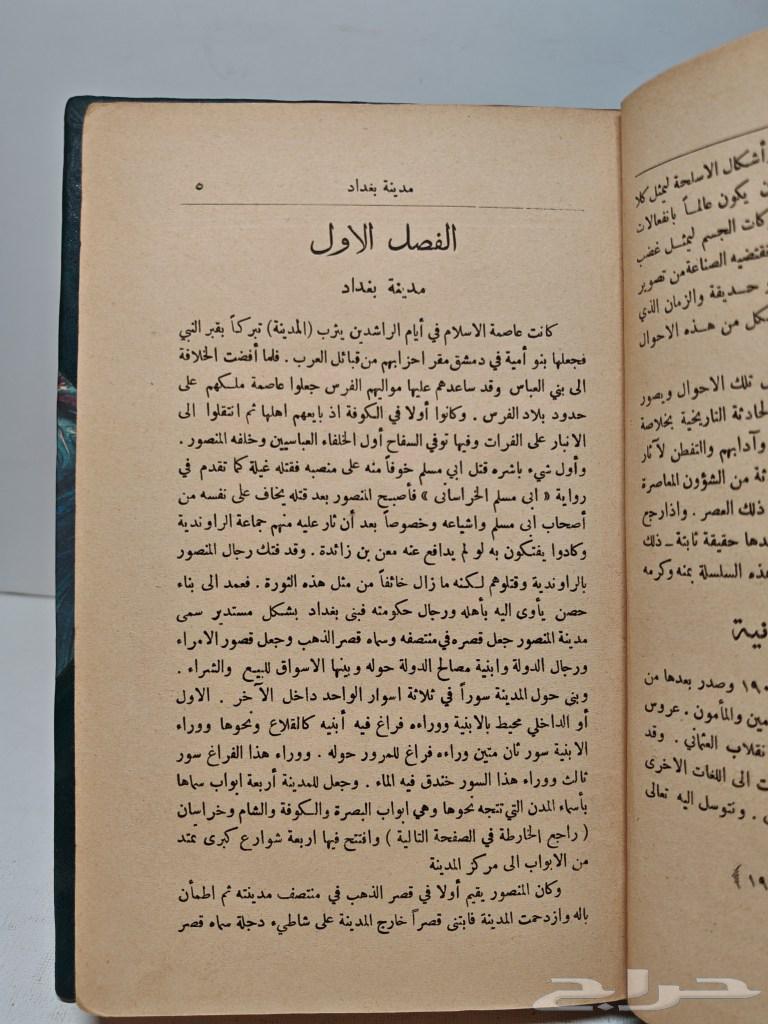 مدينة بغداد ٥
الفصل الاول
مدينة بغداد
كانت عاصمة الاسلام في أيام الراشدين يثرب (المدينة) تبركاً بقبر النبي
فجعلها بنو أمية في دمشق مقر احزابهم من قبائل العرب . فلما أفضت الخلافة
الى بني العباس وقد ساعدهم عليها مواليهم الفرس جعلوا عاصمة ملكهم على
حدود بلاد الفرس . وكانوا أولا في الكوفة اذ بايعهم اهلها ثم انتقلوا الى
الانبار على الفرات وفيها توفي السفاح أول الخلفاء العباسيين وخلفه المنصور .
وأول شيء باشره قتل ابي مسلم خوفاً منه على منصبه فقتله غيلة كما تقدم في
رواية « ابى مسلم الخراسانى » فأصبح المنصور بعد قتله يخاف على نفسه من
أصحاب ابى مسلم واشياعه وخصوصاً بعد أن ثار عليه منهم جماعة الراوندية
وكادوا يفتكون به لو لم يدافع عنه معن بن زائدة . وقد فتك رجال المنصور
بالراوندية وقتلوهم لكنه ما زال خائفاً من مثل هذه الثورة . فعمد الى بناء
حصن يأوى اليه بأهله ورجال حكومته فبنى بغداد بشكل مستدير سمى
مدينة المنصور جعل قصره في منتصفه وسماه قصر الذهب وجعل قصور الامراء
ورجال الدولة وابنية مصالح الدولة حوله وبينها الاسواق للبيع والشراء .
وبنى حول المدينة سوراً في ثلاثة اسوار الواحد داخل الآخر . الاول
أو الداخلي محيط بالابنية ووراءه فراغ فيه أبنيه كالقلاع ونحوها ووراء
الابنية سور ثان متين وراءه فراغ للمرور حوله . ووراء هذا الفراغ سور
ثالث ووراء هذا السور خندق فيه الماء . وجعل للمدينة أربعة ابواب سماها
بأسماء المدن التي تتجه نحوها وهي ابواب البصرة والكوفة والشام وخراسان
( راجع الخارطة في الصفحة التالية ) وافتتح فيها اربعة شوارع كبرى تمتد
من الابواب الى مركز المدينة
وكان المنصور يقيم أولا في قصر الذهب في منتصف مدينته ثم اطمأن
باله وازدحمت المدينة فابتنى قصراً خارج المدينة على شاطيء دجلة سماه قصر
أشكال الاسلحة ليمثل كلا
يكون عالماً بانفعالات
كات الجسم ليمثل غضب
تقتضيه الصناعة من تصوير
حديقة والزمان الذي
كل من هذه الاحوال
تلك الاحوال ويصور
الحادثة التاريخية بخلاصة
وآدابهم والتفطن لآثار
ثة من الشؤون المعاصرة
ذلك العصر . واذا رجع
دها حقيقة ثابتة ـ ذلك
هذه السلسلة بمنه وكرمه
وصدر بعدها من
مين والمأمون . عروس
نقلاب العثماني . وقد
ت الى اللغات الاخرى
. ونتوسل اليه تعالى
حراج